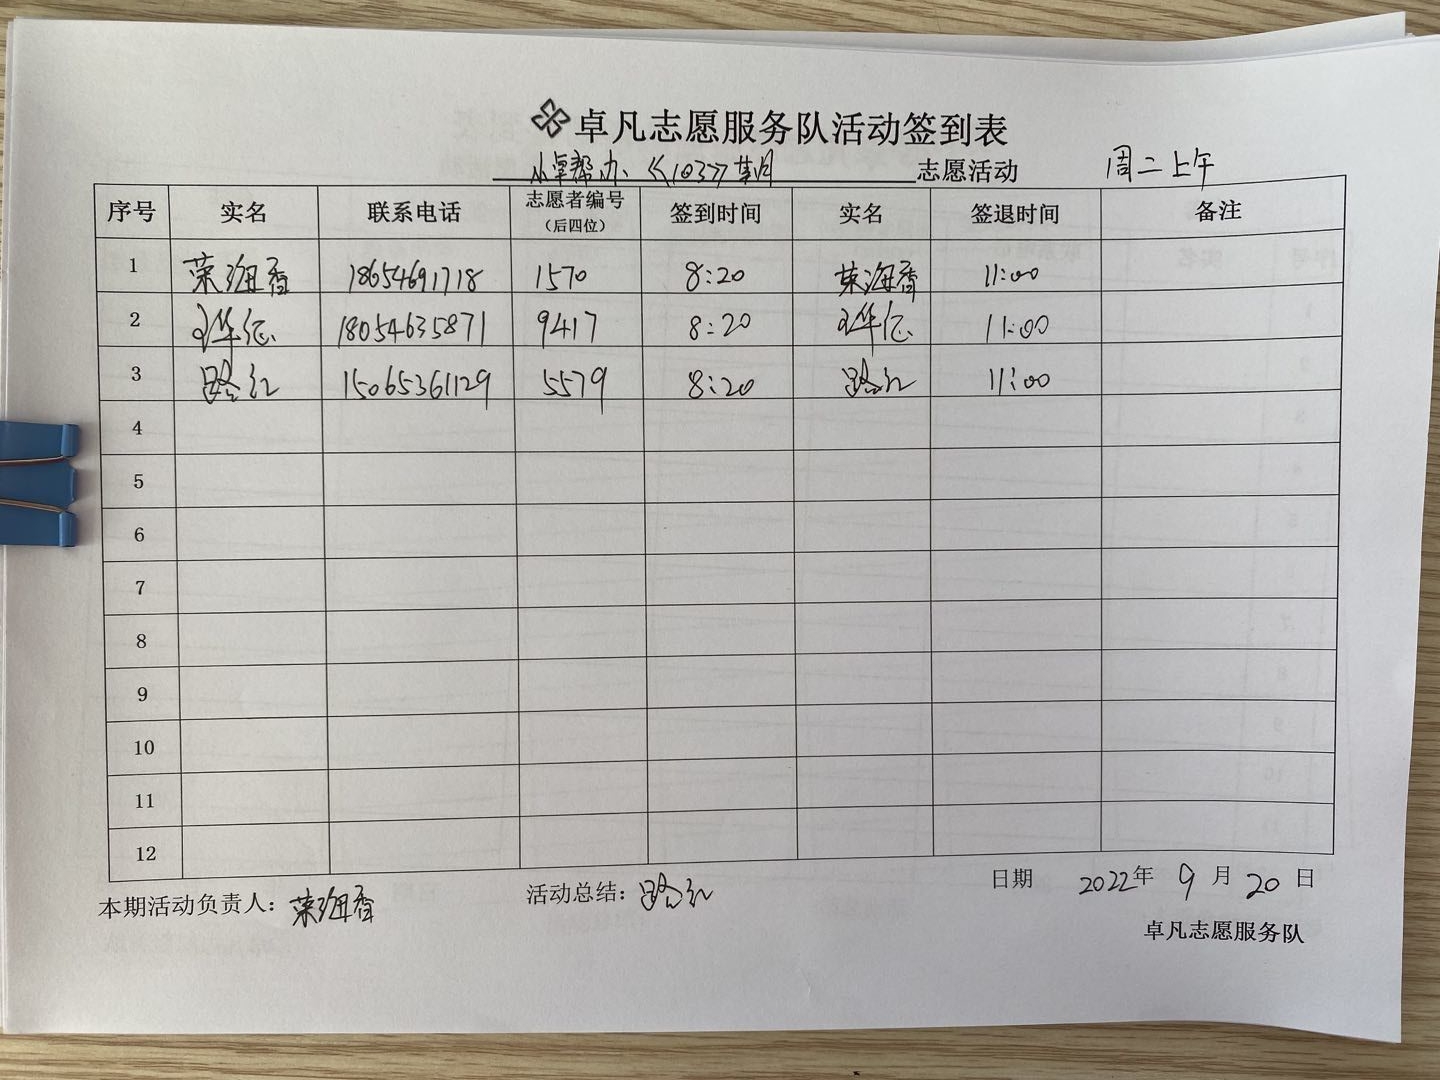 卓凡志愿服务队活动签到表
小卓帮办《103》期 志愿活动 周二上午
序号 实名 联系电话 志愿者编号（后四位） 签到时间 实名 签退时间 备注
1 荣海香 18654691718 1570 8:20 荣海香 11:00
2 18054635871 9417 8:20 11:00
3 路红 15065361129 5579 8:20 路红 11:00
4
5
6
7
8
9
10
11
12
本期活动负责人：荣海香 活动总结：路红 日期 2022年9月20日
卓凡志愿服务队